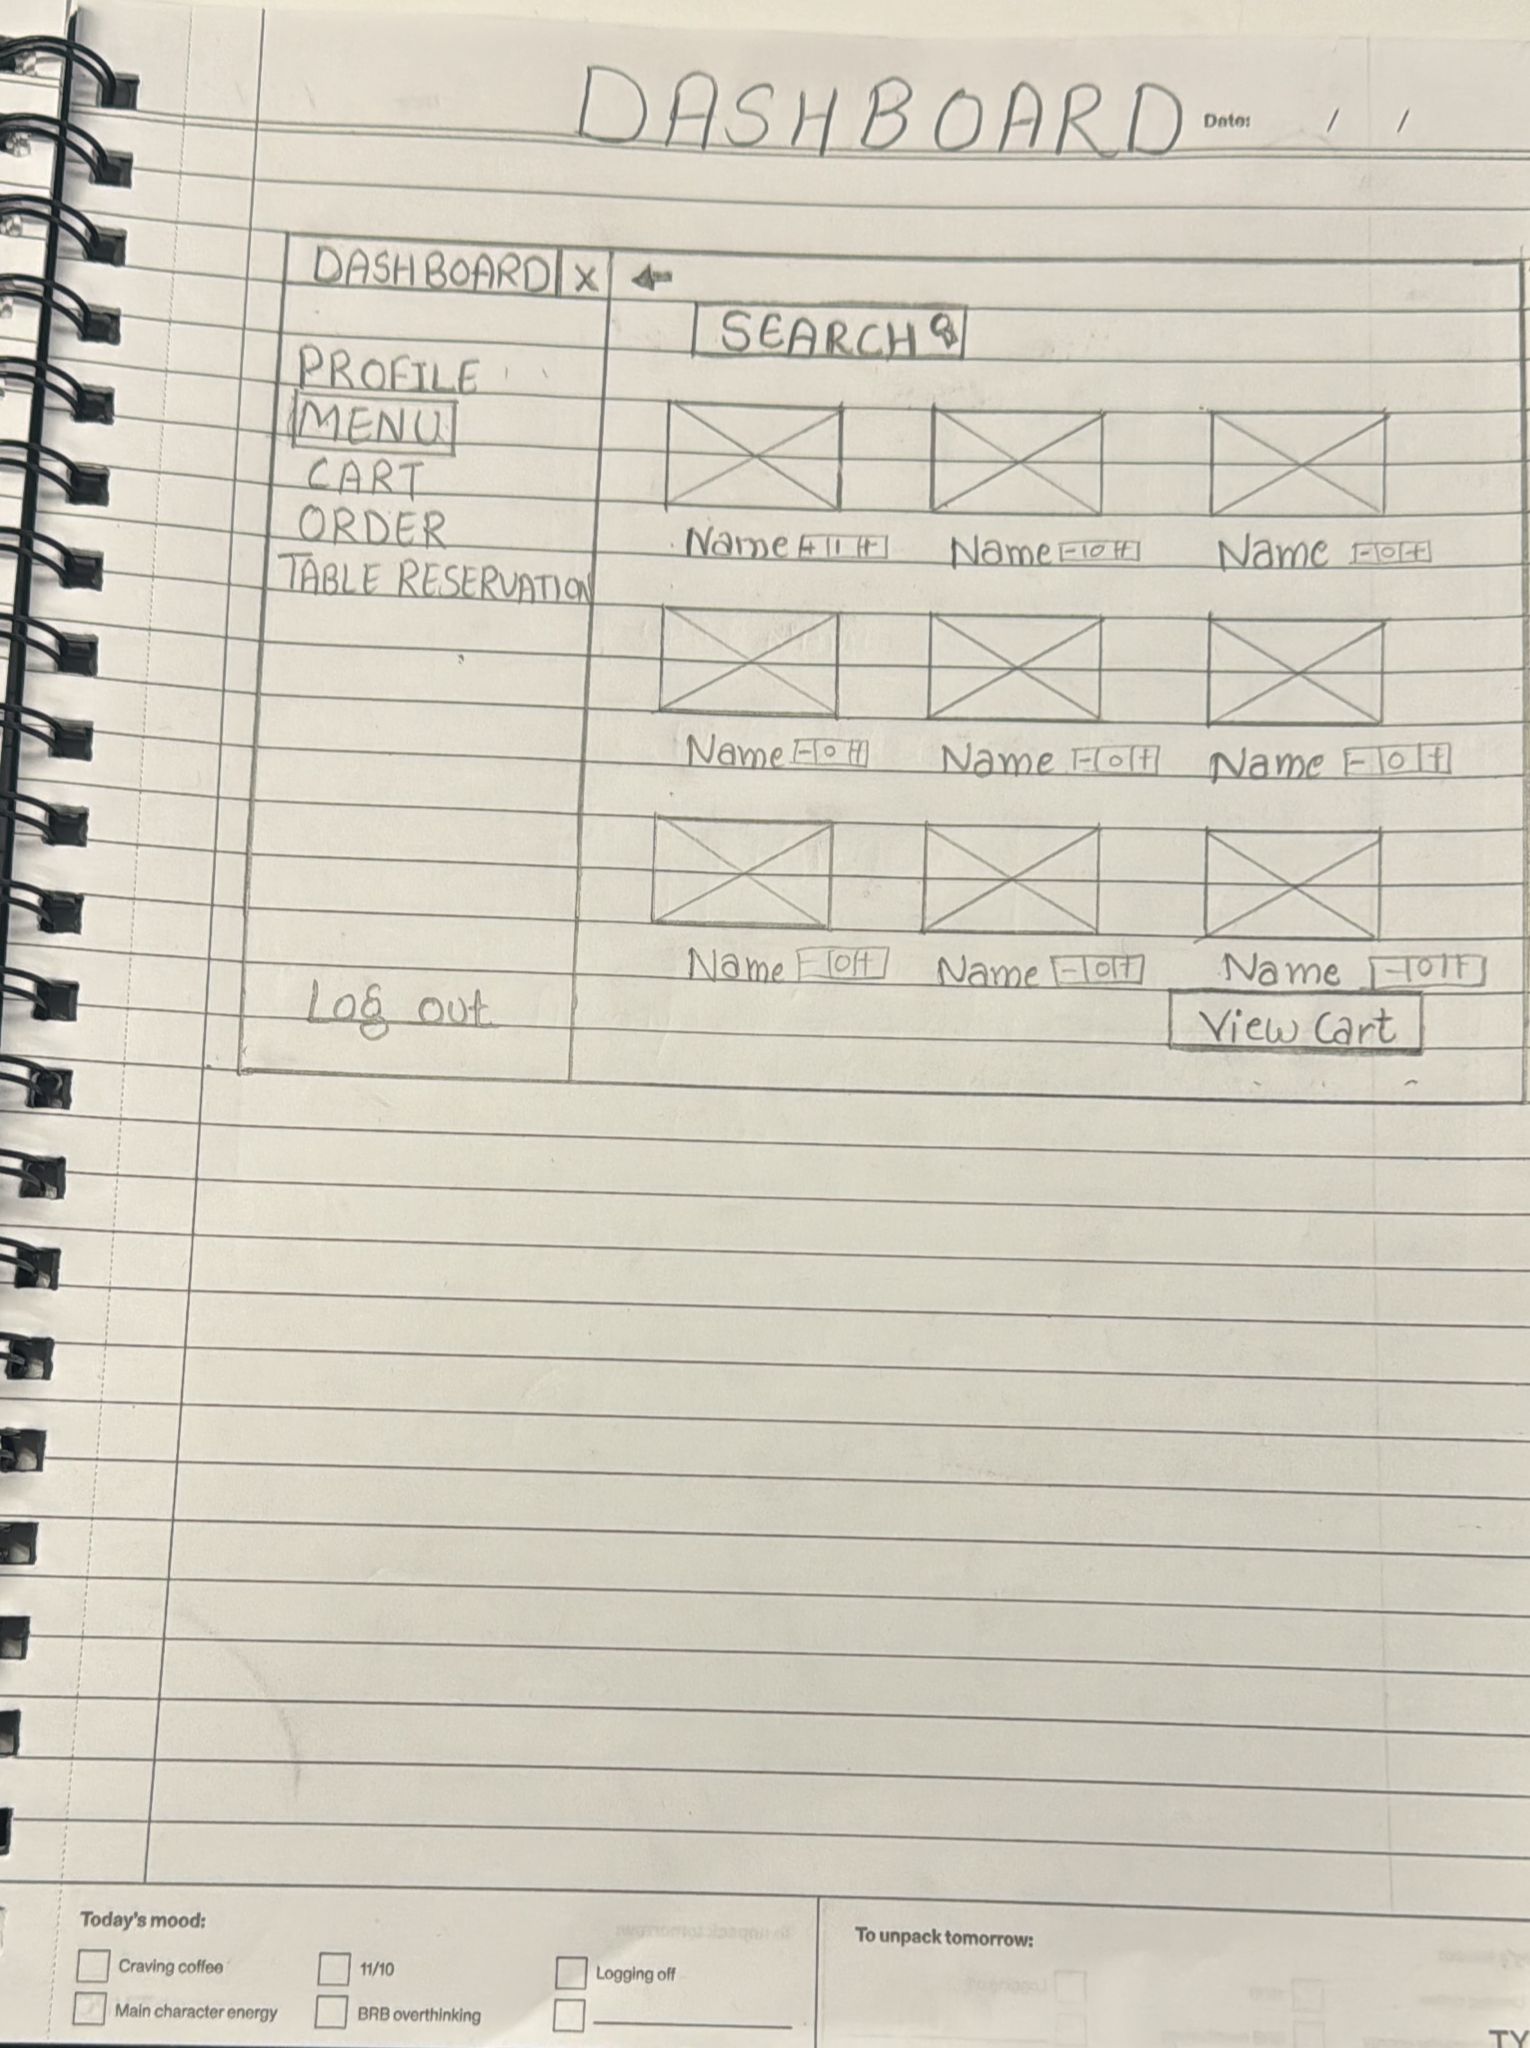 DASHBOARD Date: / /
DASHBOARD X ←
SEARCH
PROFILE
MENU
CART
ORDER
TABLE RESERVATION
Name Name - 0 + Name - 0 +
Name - 0 + Name - 0 + Name - 0 +
Name - 0 + Name - 0 + Name - 0 +
Log out
View Cart
Today's mood:
Craving coffee 11/10 Logging off
Main character energy BRB overthinking
To unpack tomorrow:
TY